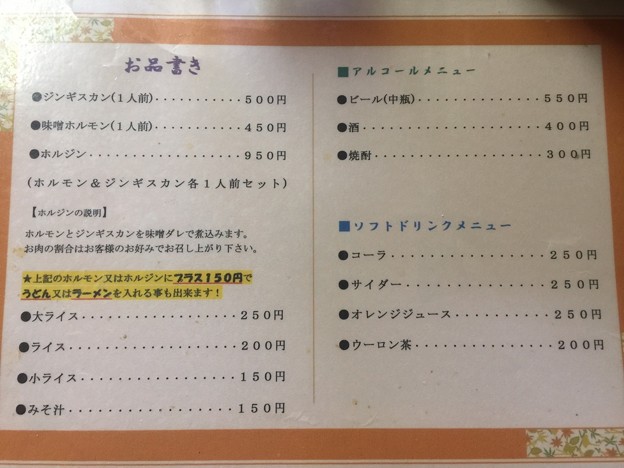 お品書き
●ジンギスカン(1人前)...........500円
●味噌ホルモン(1人前)...........450円
●ホルジン..................950円
(ホルモン＆ジンギスカン各1人前セット)
【ホルジンの説明】
ホルモンとジンギスカンを味噌ダレで煮込みます。
お肉の割合はお客様のお好みでお召し上がり下さい。
★上記のホルモン又はホルジンにプラス150円で
うどん又はラーメンを入れる事も出来ます！
●大ライス..................250円
●ライス...................200円
●小ライス..................150円
●みそ汁...................150円
■アルコールメニュー
●ビール(中瓶)..............550円
●酒.....................400円
●焼酎....................300円
■ソフトドリンクメニュー
●コーラ...................250円
●サイダー..................250円
●オレンジジュース..............250円
●ウーロン茶.................200円